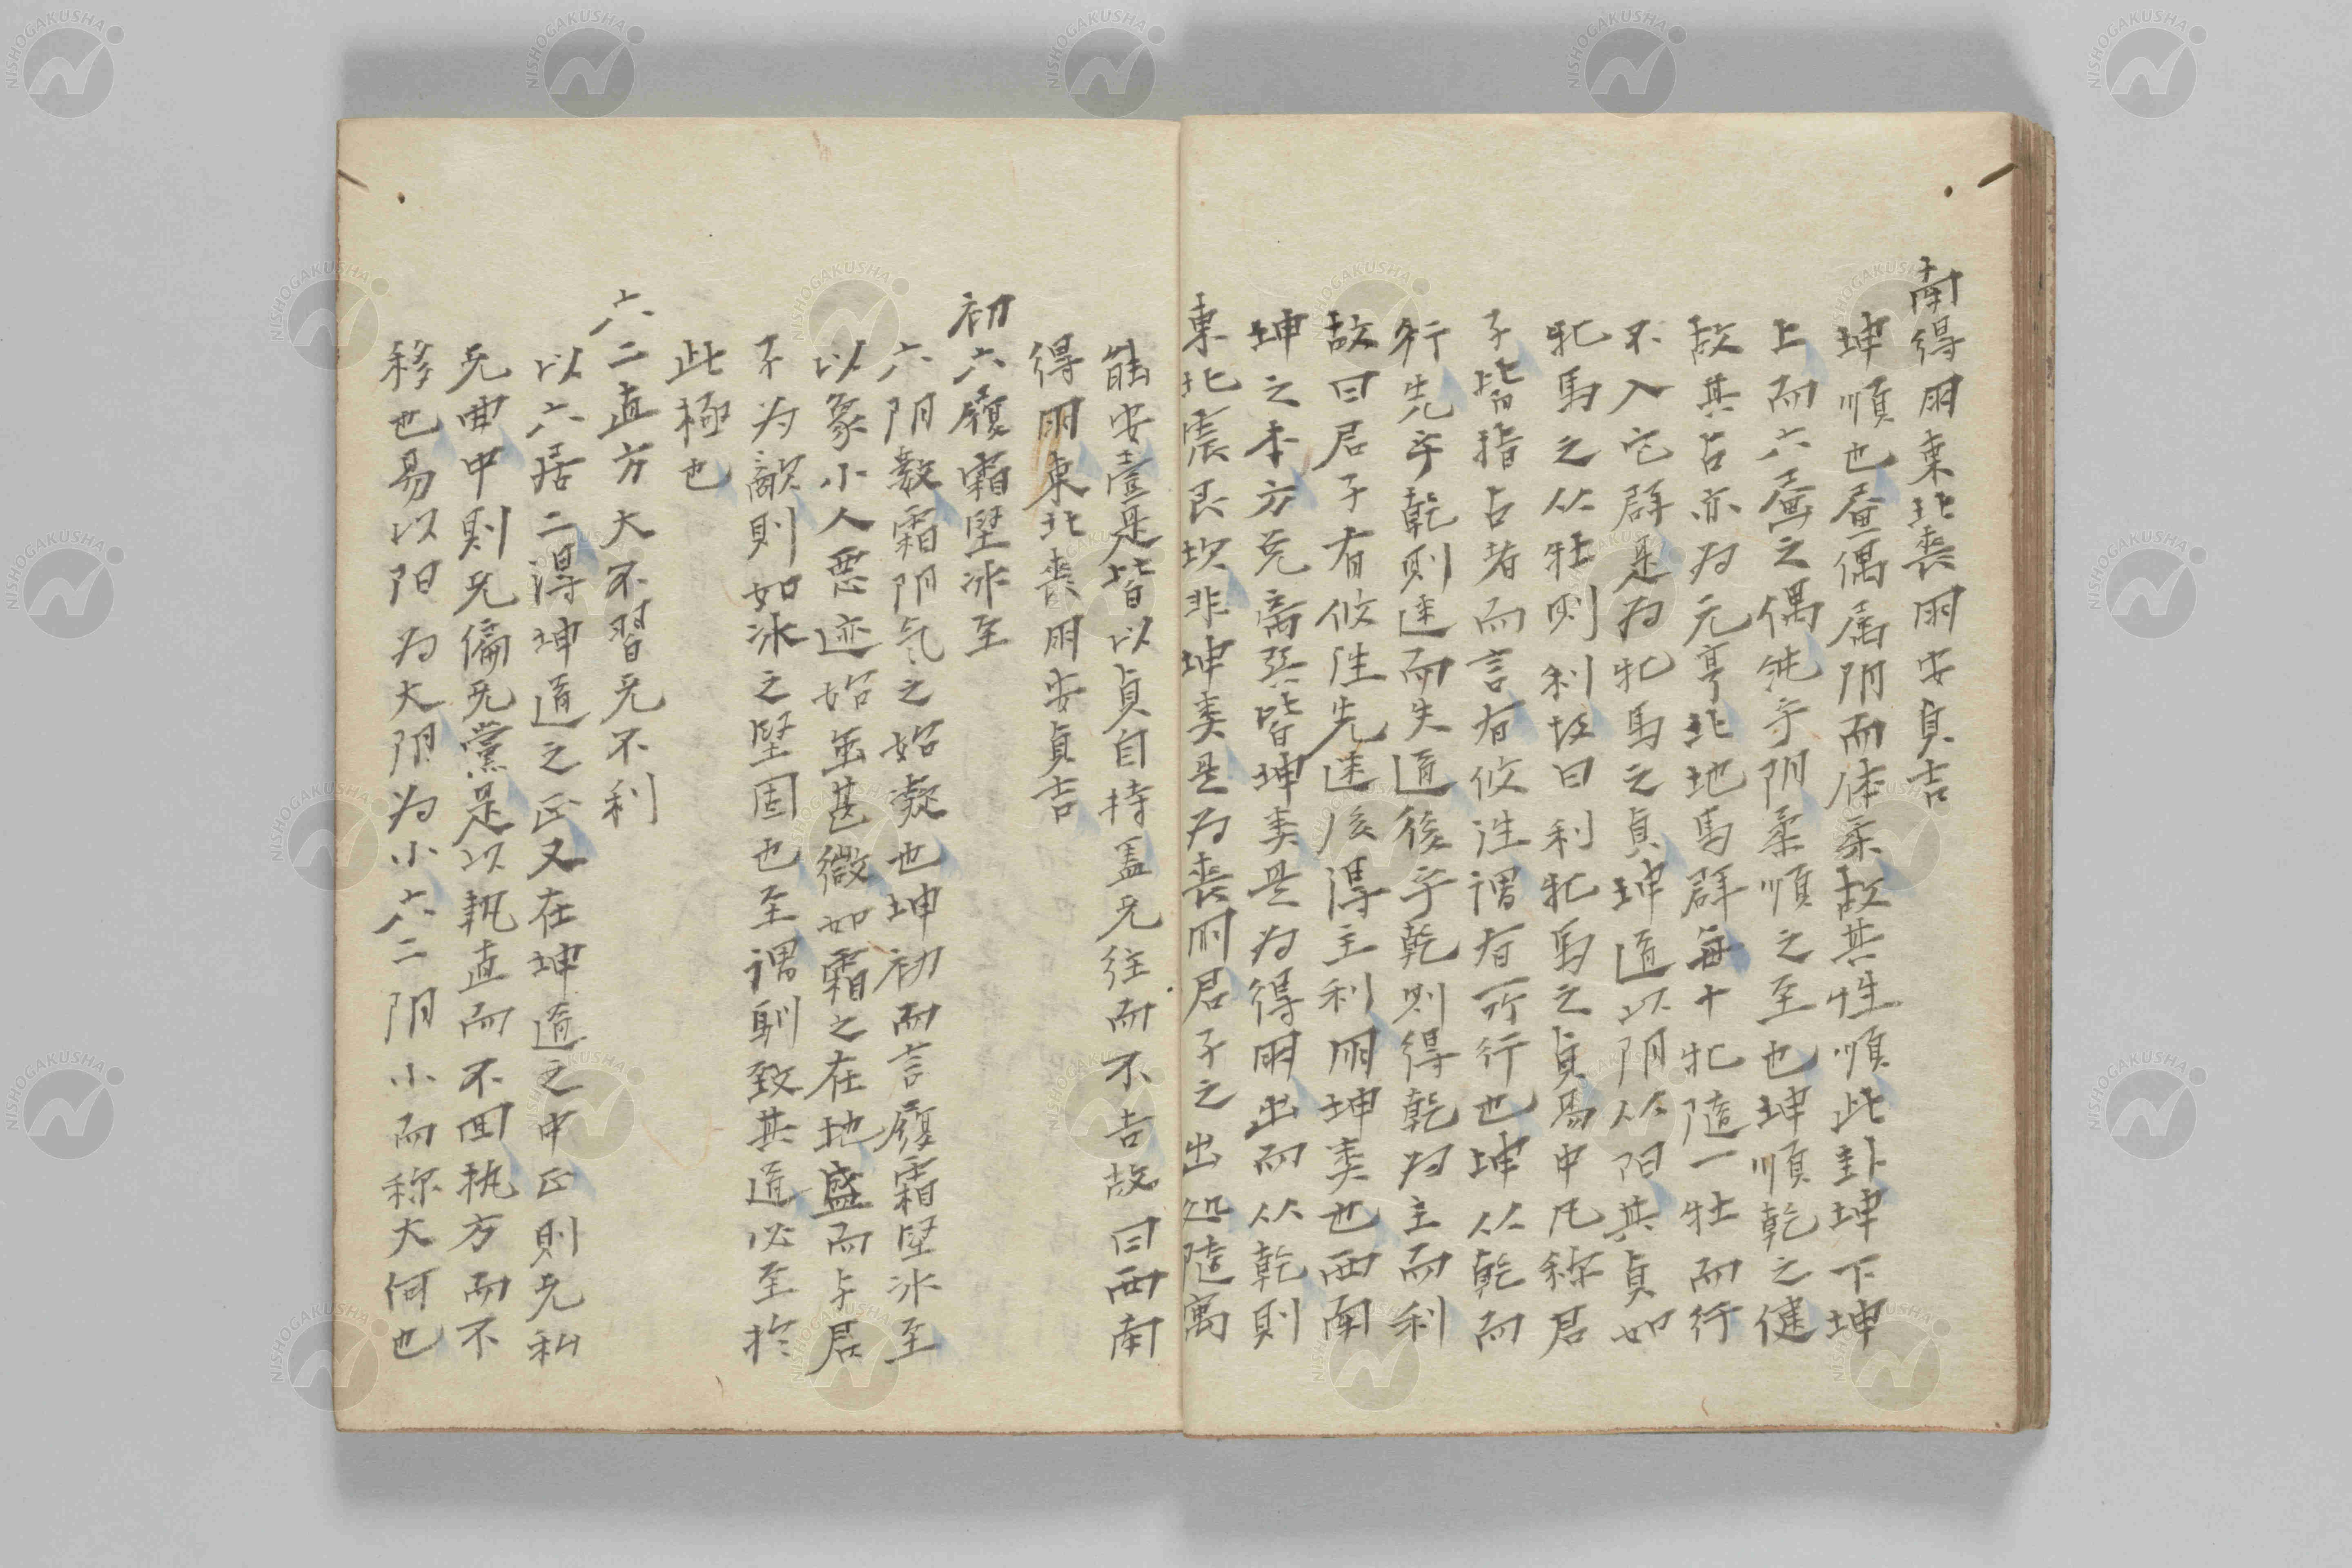 南得朋東北喪朋安貞吉
坤順也畫偶属阴而体柔故其性順此卦坤下坤
上而六畫之偶純乎阴柔順之至也坤順乾之健
故其占亦为元亨北地馬群每十牝隨一牡而行
不入它群是为牝馬之貞坤道以阴从阳其貞如
牝馬之从牡则利故曰利牝馬之貞易中凡称君
子皆指占者而言有攸往謂有所行也坤从乾而
行先乎乾则迷而失道後乎乾则得乾为主而利
故曰君子有攸往先迷後得主利朋坤类也西南
坤之本方兌离巽皆坤类是为得朋出而从乾則
東北震艮坎非坤类是为喪朋君子之出処随寓
能安壹是皆以貞自持盖无往而不吉故曰西南
得朋東北喪朋安貞吉
初六履霜堅冰至
六阴数霜阴气之始凝也坤初而言履霜堅冰至
以象小人悪迹始虽甚微如霜之在地盛而与君
子为敵則如冰之堅固也至謂馴致其道必至於
此極也
六二直方大不習无不利
以六居二得坤道之正又在坤道之中正則无私
无曲中則无偏无黨是以執直而不回執方而不
移也易以阳为大阴为小六二阴小而称大何也